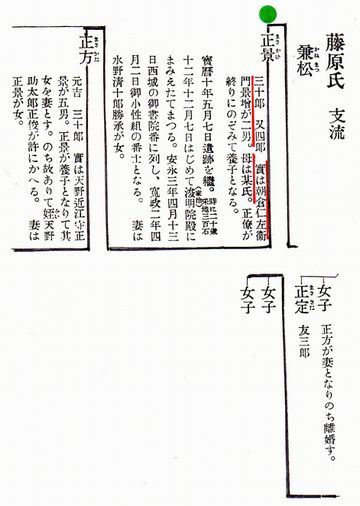 藤原氏 支流
兼松
かねまつ
正景
三十郎 又四郎 實は朝倉仁左衞
門景增が二男。母は某氏。正僚が
終りにのぞみて養子となる。
寶暦十年五月七日遺跡を繼。時に二十歳 采地三百石
十二年十二月七日はじめて浚明院殿に
まみえたてまつる。安永三年四月十三
日西城の御書院番に列し、寛政二年四
月二日御小性組の番士となる。 妻は
水野清十郎勝承が女。
正方
まさかた
元吉 三十郎 實は天野近江守正
景が五男。正景が養子となりて其
女を妻とす。のち故ありて姪天野
助太郎正俊が許にかへる。 妻は
正景が女。
女子 正方が妻となりのち離婚す。
正定 友三郎
まささだ
女子
女子